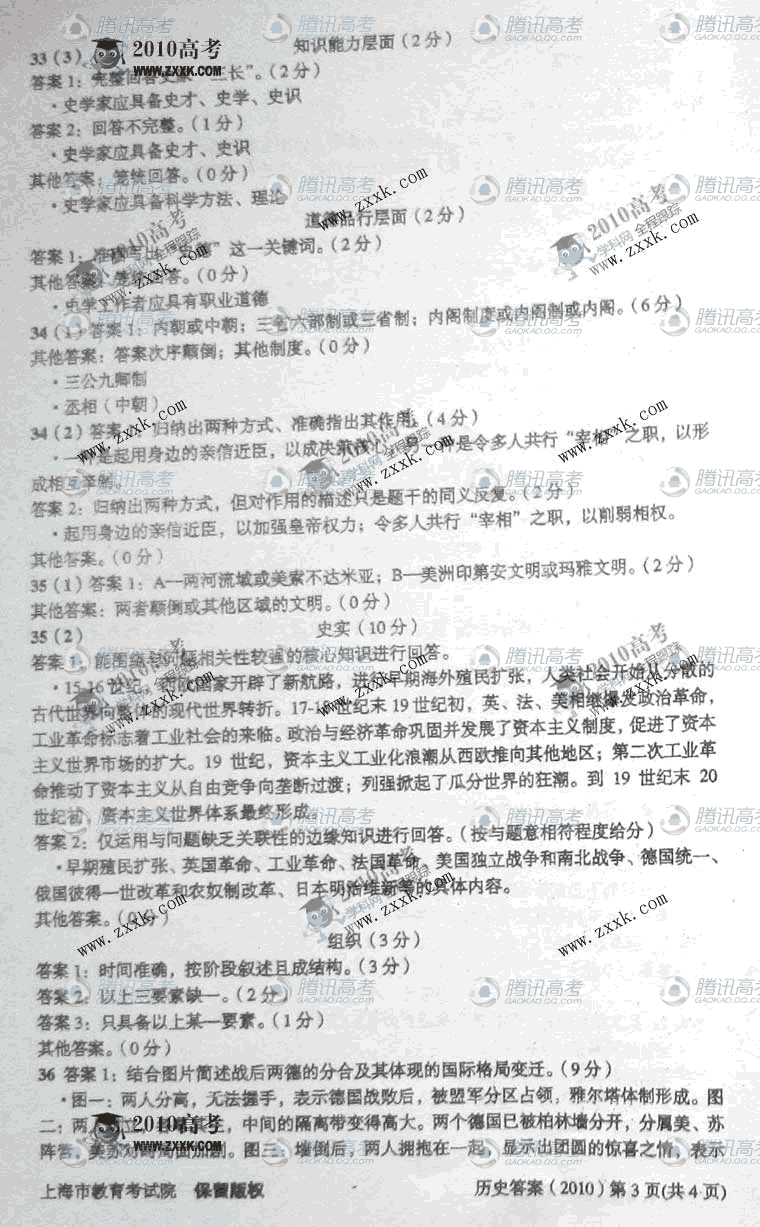 33（3） 知识能力层面（2分）
答案1：完整回答史家“三长”。（2分）
·史学家应具备史才、史学、史识
答案2：回答不完整。（1分）
·史学家应具备史才、史识
其他答案：笼统回答。（0分）
·史学家应具备科学方法、理论
道德品行层面（2分）
答案1：准确写出“史德”这一关键词。（2分）
其他答案：笼统回答。（0分）
·史学工作者应具有职业道德
34（1）答案1：内朝或中朝；三省六部制或三省制；内阁制度或内阁制或内阁。（6分）
其他答案：答案次序颠倒；其他制度。（0分）
·三公九卿制
·丞相（中朝）
34（2）答案1：归纳出两种方式、准确指出其作用。（4分）
·一种是起用身边的亲信近臣，以成决策核心；另一种是令多人共行“宰相”之职，以形
成相互牵制。
答案2：归纳出两种方式，但对作用的描述只是题干的同义反复。（2分）
·起用身边的亲信近臣，以加强皇帝权力；令多人共行“宰相”之职，以削弱相权。
其他答案。（0分）
35（1）答案1：A—两河流域或美索不达米亚；B—美洲印第安文明或玛雅文明。（2分）
其他答案：两者颠倒或其他区域的文明。（0分）
35（2） 史实（10分）
答案1：能围绕与问题相关性较强的核心知识进行回答。
·15-16世纪，西欧国家开辟了新航路，进行早期海外殖民扩张，人类社会开始从分散的
古代世界向整体的现代世界转折。17-18世纪末19世纪初，英、法、美相继爆发政治革命，
工业革命标志着工业社会的来临。政治与经济革命巩固并发展了资本主义制度，促进了资本
主义世界市场的扩大。19世纪，资本主义工业化浪潮从西欧推向其他地区；第二次工业革
命推动了资本主义从自由竞争向垄断过渡；列强掀起了瓜分世界的狂潮。到19世纪末20
世纪初，资本主义世界体系最终形成。
答案2：仅运用与问题缺乏关联性的边缘知识进行回答。（按与题意相符程度给分）
·早期殖民扩张、英国革命、工业革命、法国革命、美国独立战争和南北战争、德国统一、
俄国彼得一世改革和农奴制改革、日本明治维新等的具体内容。
其他答案。（0分）
组织（3分）
答案1：时间准确，按阶段叙述且成结构。（3分）
答案2：以上三要素缺一。（2分）
答案3：只具备以上某一要素。（1分）
其他答案。（0分）
36 答案1：结合图片简述战后两德的分合及其体现的国际格局变迁。（9分）
·图一：两人分离，无法握手，表示德国战败后，被盟军分区占领，雅尔塔体制形成。图
二：两 中间的隔离带变得高大。两个德国已被柏林墙分开，分属美、苏
阵营，美苏对峙局面加剧。图三：墙倒后，两人拥抱在一起，显示出团圆的惊喜之情，表示
上海市教育考试院 保留版权 历史答案（2010）第3页（共4页）
2010高考
WWW.ZXXK.COM
腾讯高考
GAOKAO.QQ.COM
2010高考
学科网 全程跟踪
www.zxxk.com